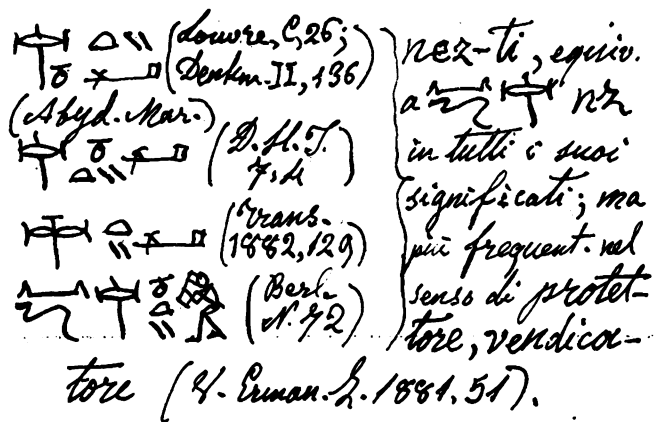 (Louvre, C, 26;
Denkm. II, 136)
(Abyd. Mar.)
(D. H. I.
7. 4)
(Trans.
1882, 129)
(Berl.
N. 72)
nez-ti, equiv.
a nz
in tutti i suoi
significati; ma
più frequent. nel
senso di protet-
tore, vendica-
tore (V. Erman. Z. 1881, 51).